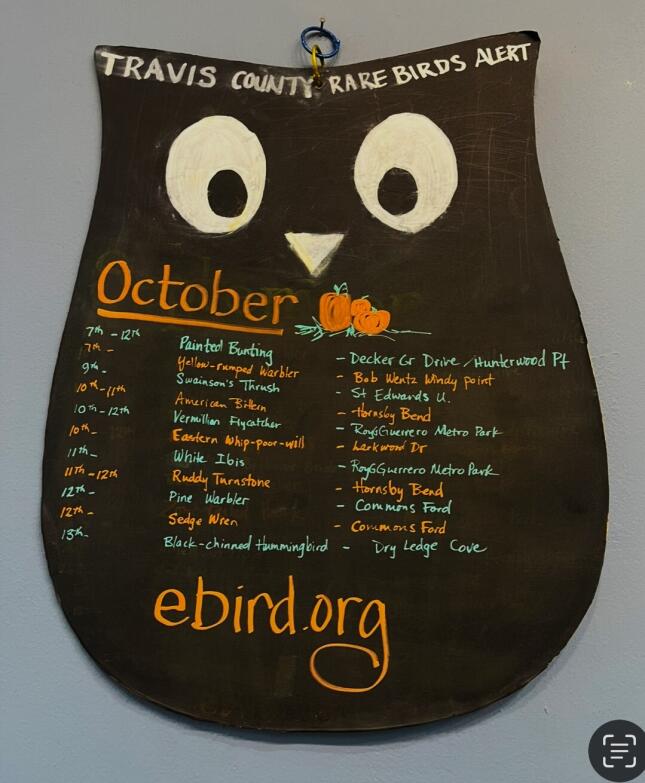 TRAVIS COUNTY RARE BIRDS ALERT
October
7th - 12th Painted Bunting - Decker Cr Drive / Hunterwood Pt
7th - Yellow-rumped Warbler - Bob Wentz Windy point
9th - Swainson's Thrush - St Edwards U.
10th - 11th American Bittern - Hornsby Bend
10th - 12th Vermilion Flycatcher - Roy&Guerrero Metro Park
10th - Eastern Whip-poor-will - Larkwood Dr
11th - White Ibis - Roy&Guerrero Metro Park
11th - 12th Ruddy Turnstone - Hornsby Bend
12th - Pine Warbler - Commons Ford
12th - Sedge Wren - Commons Ford
13th - Black-chinned Hummingbird - Dry Ledge Cove
ebird.org